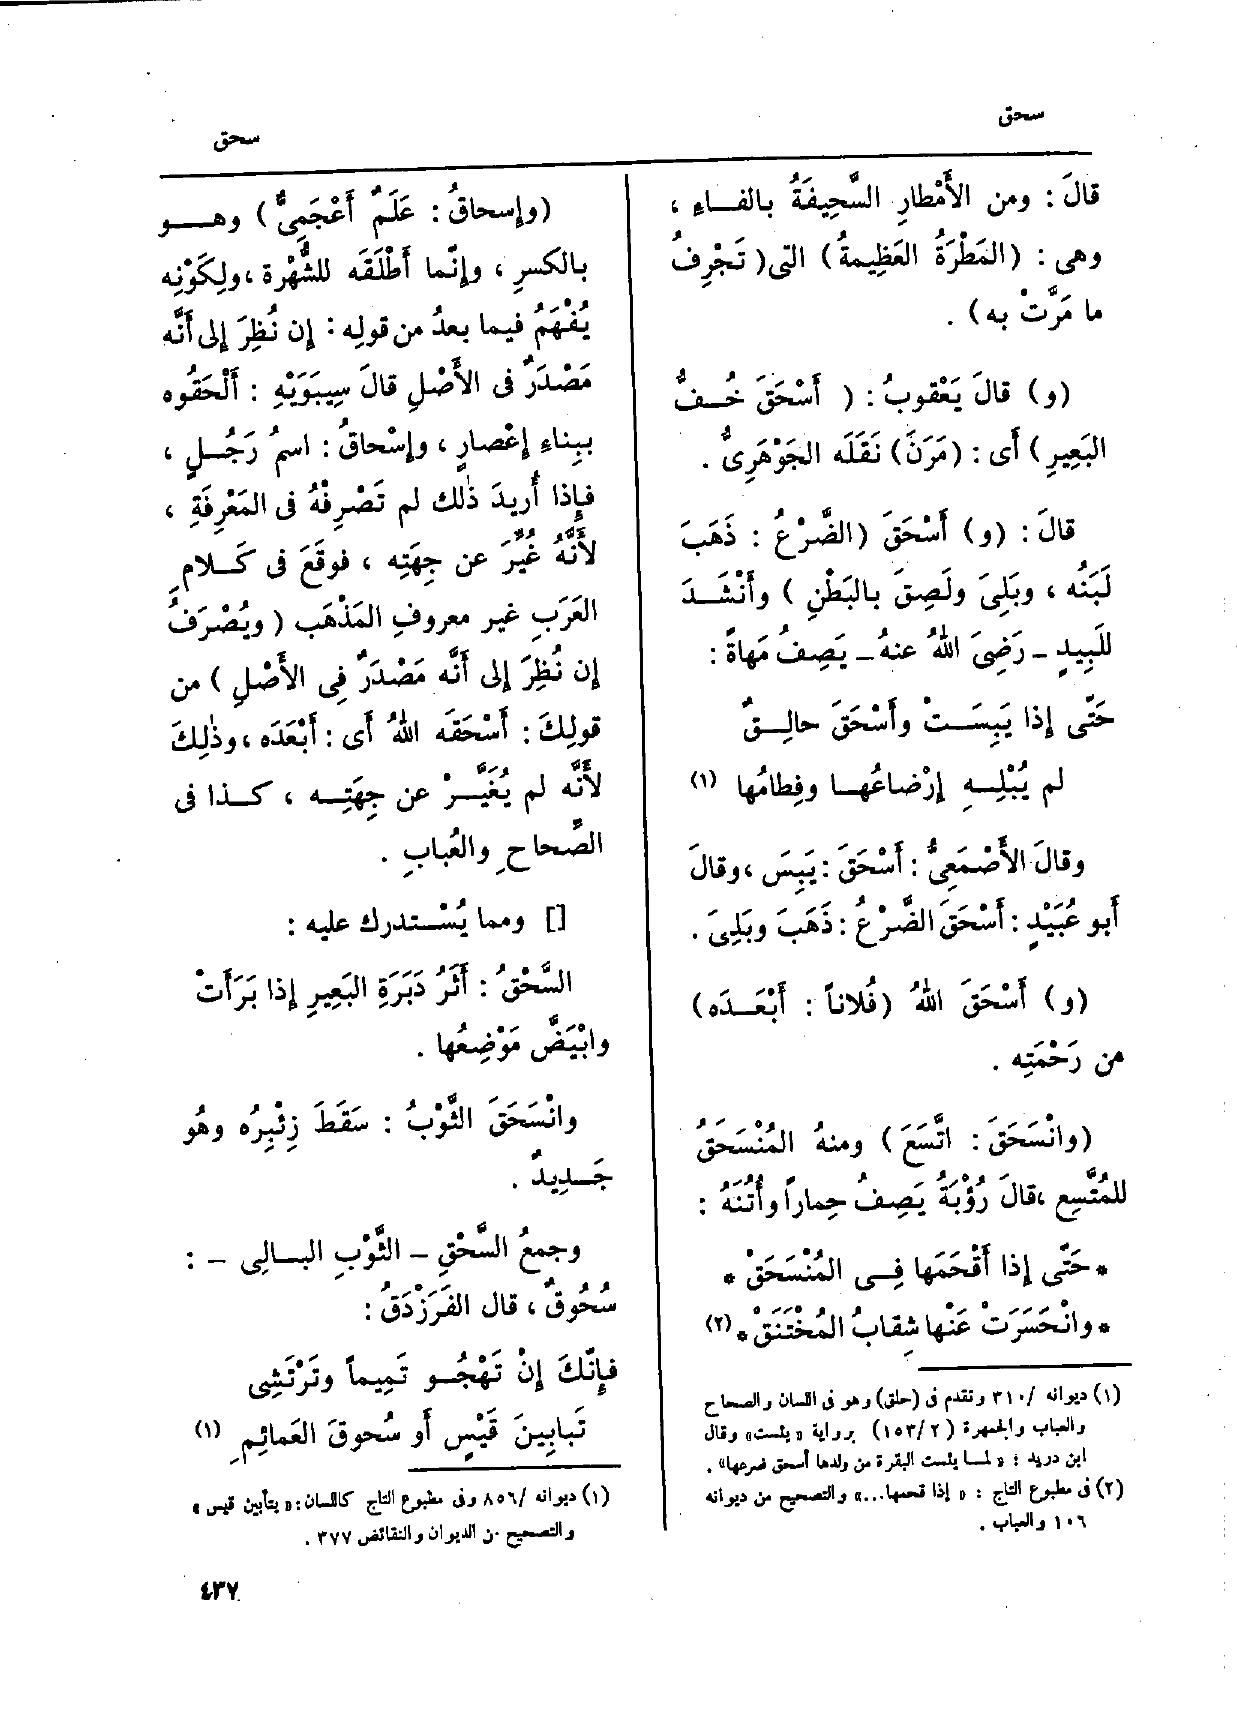 سحق
سحق
قالَ : ومن الأَمْطارِ السَّحِيفَةُ بالفـاءِ ،
وهى : (المَطْرَةُ العَظِيمةُ) التى (تَجْرِفُ
ما مَرَّتْ به) .
(و) قالَ يَعْقوبُ : ( أَسْحَقَ خُـفُّ
البَعِيرِ) أى : (مَرَنَ) نَقَلَه الجَوْهَرِىُّ .
قالَ : (و) أَسْحَقَ (الضَّرْعُ : ذَهَبَ
لَبَنُه ، وبَلِىَ ولَصِقَ بالبَطْنِ ) وأَنْشَـدَ
للَبِيدٍ ـ رَضِىَ اللهُ عنهُ ـ يَصِفُ مَهاةً :
حَتَّى إذا يَبِسَـتْ وأَسْحَقَ حالِـقٌ
لم يُبْلِـهِ إِرْضاعُهـا وفِطامُها (١)
وقالَ الأَصْمَعِىُّ : أَسْحَقَ : يَبِسَ ، وقالَ
أَبو عُبَيْدٍ : أَسْحَقَ الضَّرْعُ : ذَهَبَ وبَلِىَ .
(و) أَسْحَقَ اللهُ (فُلاناً : أَبْعَـدَه)
من رَحْمَتِه .
(وانْسَحَقَ : اتَّسَعَ) ومنهُ المُنْسَحَقُ
للمُتَّسِعِ ،قالَ رُؤْبَةُ يَصِفُ حِماراً وأُتُنَهُ :
* حَتَّى إذا أَقْحَمَها فِـى المُنْسَحَقْ *
* وانْحَسَرَتْ عَنْها شِقابُ المُخْتَنَقْ * (٢)
(١) ديوانه /٣١٠ وتقدم فى (حلق) وهو فى اللسان والصحاح
والعباب والجمهرة (١٥٣/٢) برواية «يئست» وقال
ابن دريد : «لمـا يئست البقرة من ولدها أسحق ضرعها» .
(٢) فى مطبوع التاج : « إذا قحمها...» والتصحيح من ديوانه
١٠٦ والعباب .
(وإسحاقُ : عَلَمٌ أَعْجَمِىٌّ) وهـو
بالكسرِ ، وإنَّما أَطْلَقَه للشُّهْرة ،ولِكَوْنِه
يُفْهَمُ فيما بعدُ من قولِه : إن نُظِرَ إلى أَنَّه
مَصْدَرٌ فى الأَصْلِ قالَ سِيبَوَيْهِ : أَلْحَقُوه
ببِناءِ إعْصارٍ ، وإسْحاقُ : اسمُ رَجُـلٍ ،
فإِذا أُرِيدَ ذٰلك لم تَصْرِفْهُ فى المَعْرِفَةِ ،
لأَنَّهُ غُيِّرَ عن جِهَتِه ، فوقَعَ فى كَـلامِ
العَرَبِ غير معروفِ المَذْهَب ( ويُصْرَفُ
إن نُظِرَ إلى أَنَّه مَصْدَرٌ فِى الأَصْلِ ) من
قولِكَ : أَسْحَقَه اللهُ أى : أَبْعَدَه ،وذٰلِكَ
لأَنَّه لم يُغَيَّـرْ عن جِهَتِـه ، كـذا فى
الصِّحاحِ والعُبابِ .
[] ومما يُسْـتدرك عليه :
السَّحْقُ : أَثَرُ دَبَرَةِ البَعِيرِ إذا بَرَأَتْ
وابْيَضَّ مَوْضِعُها .
وانْسَحَقَ الثَّوْبُ : سَقَطَ زِئْبِرُه وهُو
جَـدِيدٌ .
وجمعُ السَّحْقِ ـ الثَّوْبِ البـالِى ـ :
سُحُوقٌ ، قال الفَرَزْدَقُ :
فإِنَّكَ إِنْ تَهْجُـو تَمِيماً وتَرْتَشِى
تَبابِينَ قَيْسٍ أَو سُحوقَ العَمائِمِ (١)
(١) ديوانه /٨٥٦ وفى مطبوع التاج كاللسان : «بتأبين قيس»
والتصحيح من الديوان والنقائض ٣٧٧ .
٤٣٧